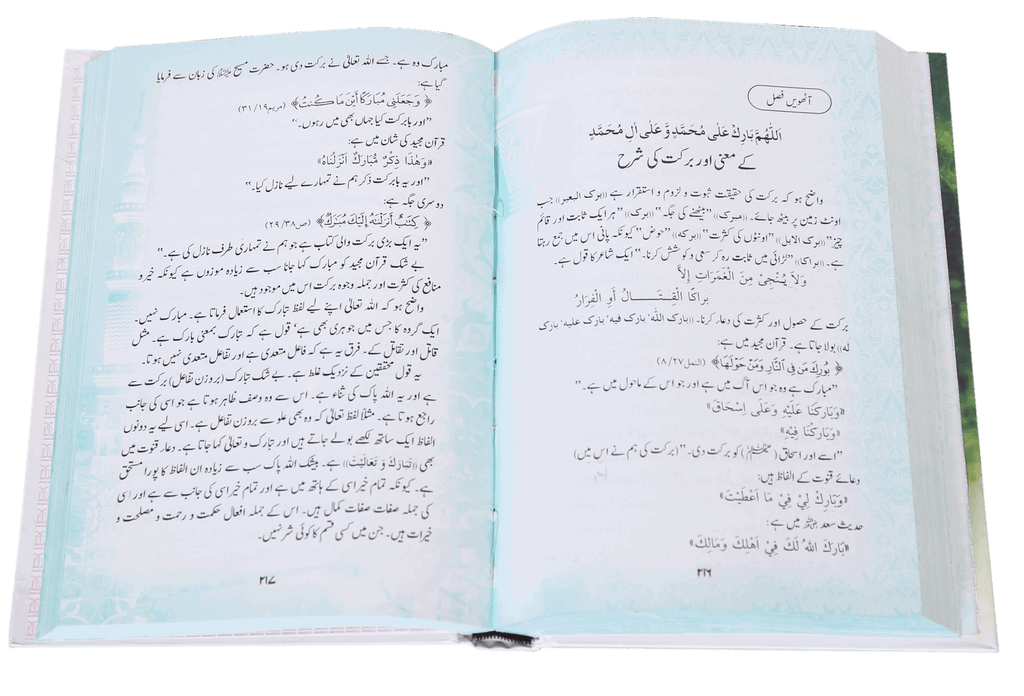 آٹھویں فصل
اَللّٰهُمَّ بَارِكْ عَلٰى مُحَمَّدٍ وَّ عَلٰى اٰلِ مُحَمَّدٍ
کے معنی اور برکت کی شرح
واضح ہو کہ برکت کی حقیقت ثبوت و لزوم و استقرار ہے ((برك البعير)) جب
اونٹ زمین پر بیٹھ جائے۔ ((مبرك)) ”بیٹھنے کی جگہ“ ((برك)) ”ہر ایک ثابت اور قائم
چیز“ ((برك الابل)) ”اونٹوں کی کثرت“ ((بركه)) ”حوض“ کیونکہ پانی اس میں جمع رہتا
ہے۔ ((براكا)) ”لڑائی میں ثابت رہ کر سعی و کوشش کرنا۔“ ایک شاعر کا قول ہے۔
وَلاَ يُنْجِيْ مِنَ الْغَمَرَاتِ إِلاَّ
براكا الْقِتَـــالُ أَوِ الْفِرَارُ
برکت کے حصول اور کثرت کی دعار کرنا۔ ((بارك الله' بارك فيه' بارك عليه' بارك
له)) بولا جاتا ہے۔ قرآن مجید میں ہے:
﴿ بُورِكَ مَن فِى النَّارِ وَمَنْ حَوْلَهَا﴾ (النمل ٢٧/ ٨)
”مبارک ہے وہ جو اس آگ میں ہے اور جو اس کے ماحول میں ہے۔“
«وَبَارَكنَا عَلَيْهِ وَعَلَى اِسْحَاقَ»
«وَبَارَكْنَا فِيْهِ»
”اسے اور اسحاق (علیہ السلام) کو برکت دی۔“ (برکت کی ہم نے اس میں)
دعائے قنوت کے الفاظ ہیں:
«وَبَارِكْ لِيْ فِيْ مَا أَعْطَيْتَ»
حدیث سعد میں ہے:
«بَارَكَ اللهُ لَكَ فِيْ اَهْلِكَ وَمَالِكَ»
٢١٦
مبارک وہ ہے۔ جسے اللہ تعالیٰ نے برکت دی ہو۔ حضرت مسیح کی زبان سے فرمایا
گیا ہے:
﴿ وَجَعَلَنِى مُبَارَكًا أَيْنَ مَا كُنتُ﴾ (مریم ١٩/ ٣١)
”اور بابرکت کیا جہاں بھی میں رہوں۔“
قرآن مجید کی شان میں ہے:
«وَهٰذَا ذِكْرٌ مُّبَارَكٌ اَنْزَلْنَاهُ»
”اور یہ بابرکت ذکر ہم نے تمہارے لیے نازل کیا۔“
دوسری جگہ ہے:
﴿ كِتَـٰبٌ أَنزَلْنَـٰهُ إِلَيْكَ مُبَـٰرَكٌ﴾ (ص ٣٨/ ٢٩)
”یہ ایک بڑی برکت والی کتاب ہے جو ہم نے تمہاری طرف نازل کی ہے۔“
بے شک قرآن مجید کو مبارک کہا جانا سب سے زیادہ موزوں ہے کیونکہ خیر و
منافع کی کثرت اور جملہ وجوہ برکت اس میں موجود ہیں۔
واضح ہو کہ اللہ تعالیٰ اپنے لیے لفظ تبارک کا استعمال فرماتا ہے۔ مبارک نہیں۔
ایک گروہ کا جس میں جوہری بھی ہے' قول ہے کہ تبارک بمعنی بارک ہے۔ مثل
قاتل اور تقاتل کے۔ فرق یہ ہے کہ فاعل متعدی ہے اور تفاعل متعدی نہیں ہوتا۔
یہ قول محققین کے نزدیک غلط ہے۔ بے شک تبارک (بروزن تفاعل) برکت سے
ہے اور یہ اللہ پاک کی ثناء ہے۔ اس سے وہ وصف ظاہر ہوتا ہے جو اسی کی جانب
راجع ہوتا ہے۔ مثلاً لفظ تعالیٰ کہ وہ بھی علو سے بروزن تفاعل ہے۔ اسی لیے یہ دونوں
الفاظ ایک ساتھ لکھے بولے جاتے ہیں اور تبارک و تعالیٰ کہا جاتا ہے۔ دعار قنوت میں
بھی ((تَبَارَكْتَ وَ تَعَالَيْتَ)) ہے۔ بیشک اللہ پاک سب سے زیادہ ان الفاظ کا پورا مستحق
ہے۔ کیونکہ تمام خیر اسی کے ہاتھ میں ہے اور تمام خیر اسی کی جانب سے ہے اور اسی
کی جملہ صفات صفات کمال ہیں۔ اس کے جملہ افعال حکمت و رحمت و مصلحت و
خیرات ہیں۔ جن میں کسی قسم کا کوئی شر نہیں۔
٢١٧